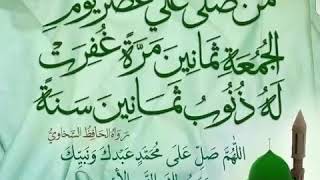 من صلى علي عصر يوم
الجمعة ثمانين مرة غفرت
له ذنوب ثمانين سنة
رواه الحافظ السخاوي
اللهم صل على محمد عبدك ونبيك